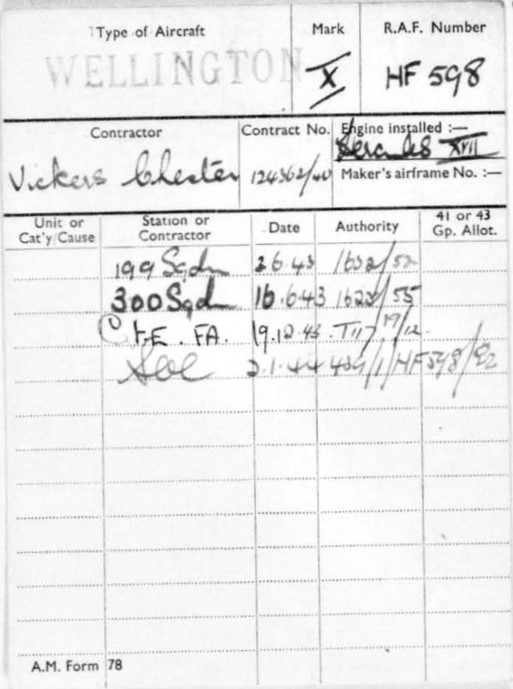 Type of Aircraft
Mark
R.A.F. Number
WELLINGTON
X
HF 598
Contractor
Contract No.
Engine installed :—
Hercules XVII
Vickers Chester
124362/40
Maker's airframe No. :—
Unit or Cat'y/Cause
Station or Contractor
Date
Authority
41 or 43 Gp. Allot.
199 Sqdn 2.6.43 1632/52
300 Sqdn 16.6.43 1622/55
C F.E. FA. 19.12.43 T117 19/12
SOC 2.1.44 434/1/HF598/E2
A.M. Form 78